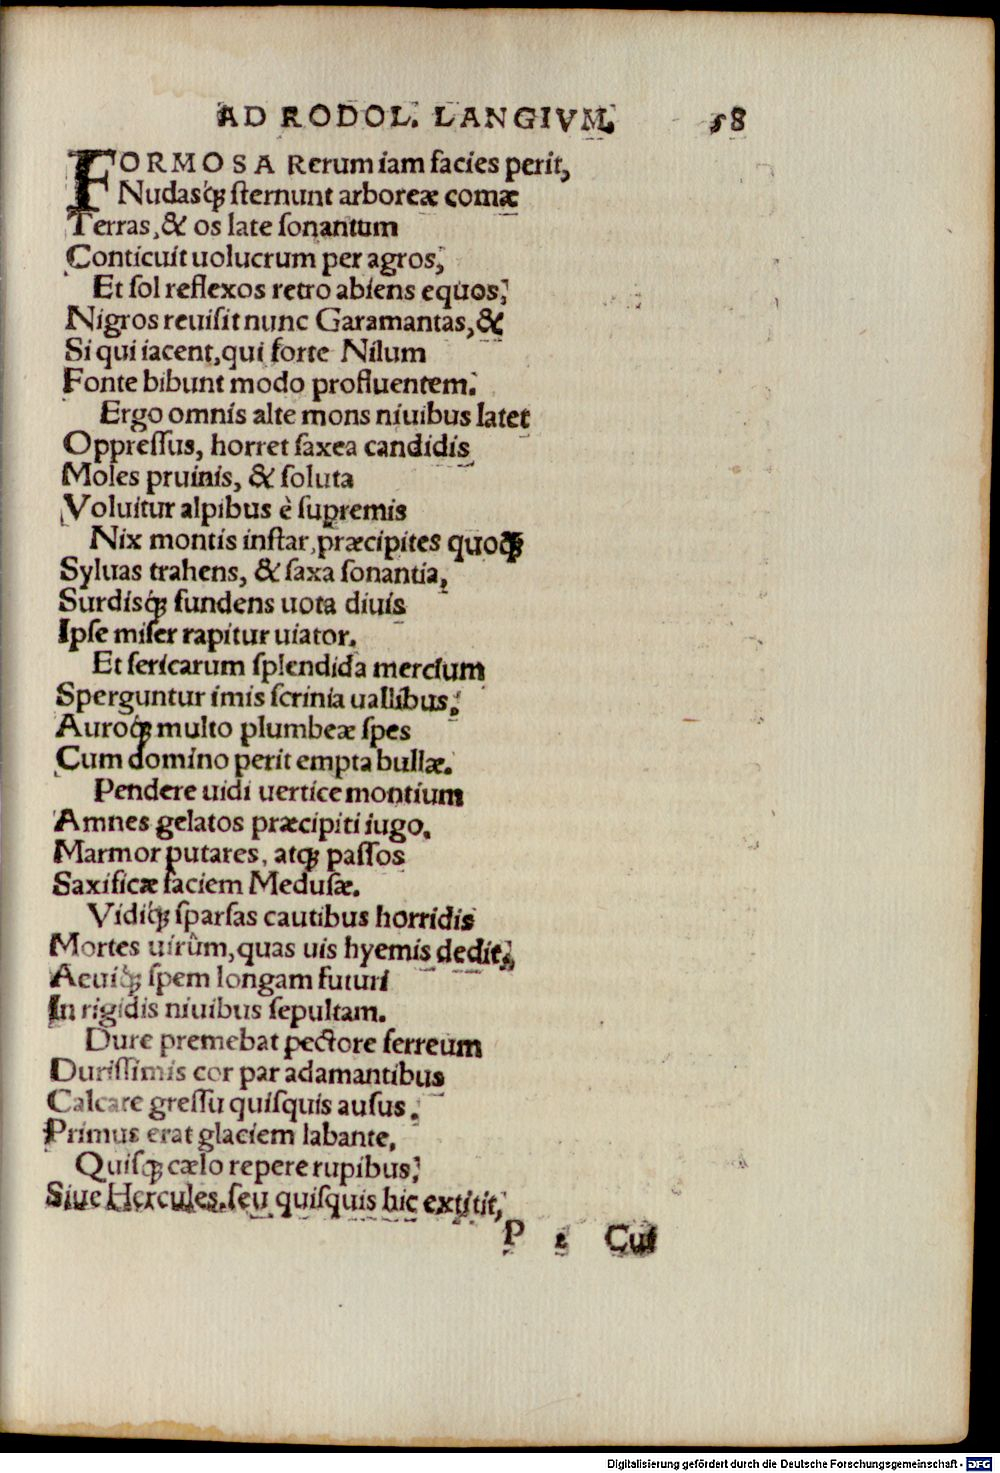 AD RODOL. LANGIVM. 58
FORMOSA Rerum iam facies perit,
Nudasq́; sternunt arboreæ comæ
Terras, & os late sonantum
Conticuit uolucrum per agros,
Et sol reflexos retro abiens equos,
Nigros reuisit nunc Garamantas, &
Si qui iacent, qui forte Nilum
Fonte bibunt modo profluentem.
Ergo omnis alte mons niuibus latet
Oppressus, horret saxea candidis
Moles pruinis, & soluta
Voluitur alpibus è supremis
Nix montis instar, præcipites quoq́;
Syluas trahens, & saxa sonantia,
Surdisq́; fundens uota diuis
Ipse miser rapitur uiator.
Et sericarum splendida mercium
Sperguntur imis scrinia uallibus,
Auroq́; multo plumbeæ spes
Cum domino perit empta bullæ.
Pendere uidi uertice montium
Amnes gelatos præcipiti iugo,
Marmor putares, atq; passos
Saxificæ faciem Medusæ.
Vidiq́; sparsas cautibus horridis
Mortes uirûm, quas uis hyemis dedit,
Aeuiq́; spem longam futuri
In rigidis niuibus sepultam.
Dure premebat pectore ferreum
Durissimis cor par adamantibus
Calcare gressu quisquis ausus
Primus erat glaciem labante,
Quisq; cælo repere rupibus,
Siue Hercules, seu quisquis hic extitit,
P 2 Cui
Digitalisierung gefördert durch die Deutsche Forschungsgemeinschaft - DFG